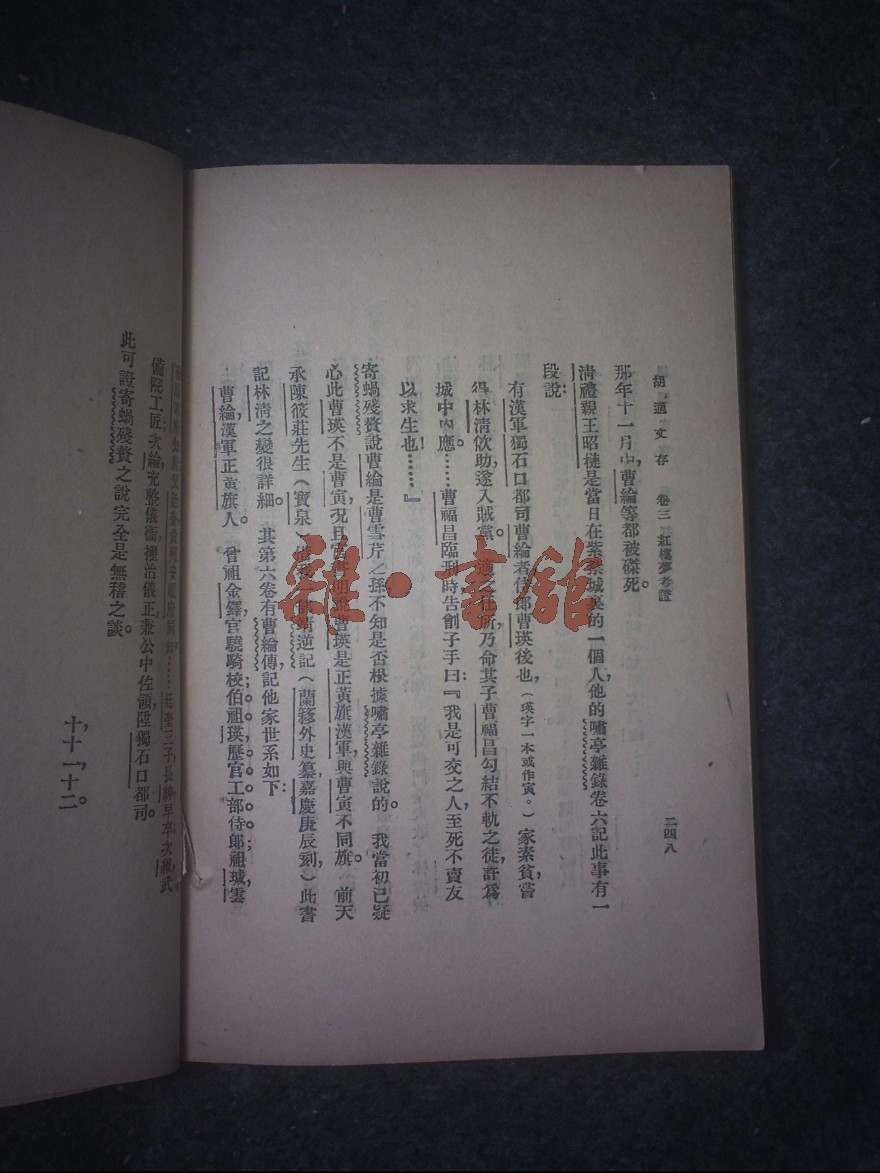 胡適文存　卷三　紅樓夢考證
二四八
那年十一月中，曹綸等都被磔死。
清禮親王昭槤是當日在紫禁城裏的一個人，他的嘯亭雜錄卷六記此事有一
段說：
有漢軍獨石口都司曹綸者，侍郎曹瑛後也，（瑛字一本或作寅。）家素貧，嘗
得林清佽助，遂入賊黨。適之任所，乃命其子曹福昌勾結不軌之徒，許為
城中內應。……曹福昌臨刑時，告劊子手曰：『我是可交之人，至死不賣友
以求生也！……』
寄蝸殘贅說曹綸是曹雪芹之孫，不知是否根據嘯亭雜錄說的。　我當初已疑
心此曹瑛不是曹寅，況且官書明說曹瑛是正黃旗漢軍，與曹寅不同旗。　前天
承陳筱莊先生（寶泉）借我靖逆記（蘭簃外史纂，嘉慶庚辰刻，）此書
記林清之變很詳細。　其第六卷有曹綸傳，記他家世系如下：
曹綸，漢軍正黃旗人。　曾祖金鐸，官驍騎校；伯祖瑛，歷官工部侍郎；祖瑊，雲
……廷奎三子，長紳，早卒；次維，武
備院工匠；次綸，充整儀衛，擢治儀正，兼公中佐領，陞獨石口都司。
此可證寄蝸殘贅之說完全是無稽之談。
十，十一，十二。
雜·書館